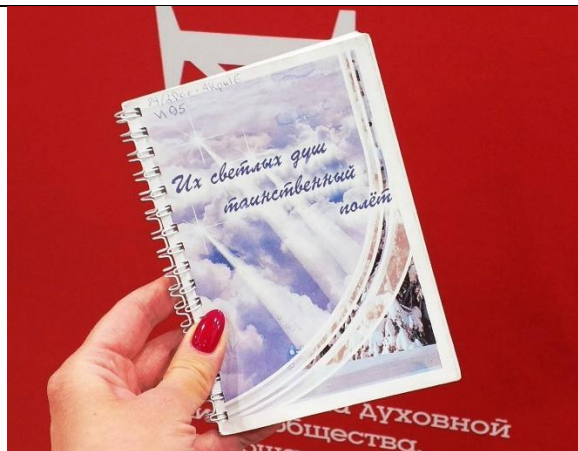 И95
Их светлых душ
таинственный
полёт
духовной
общества.